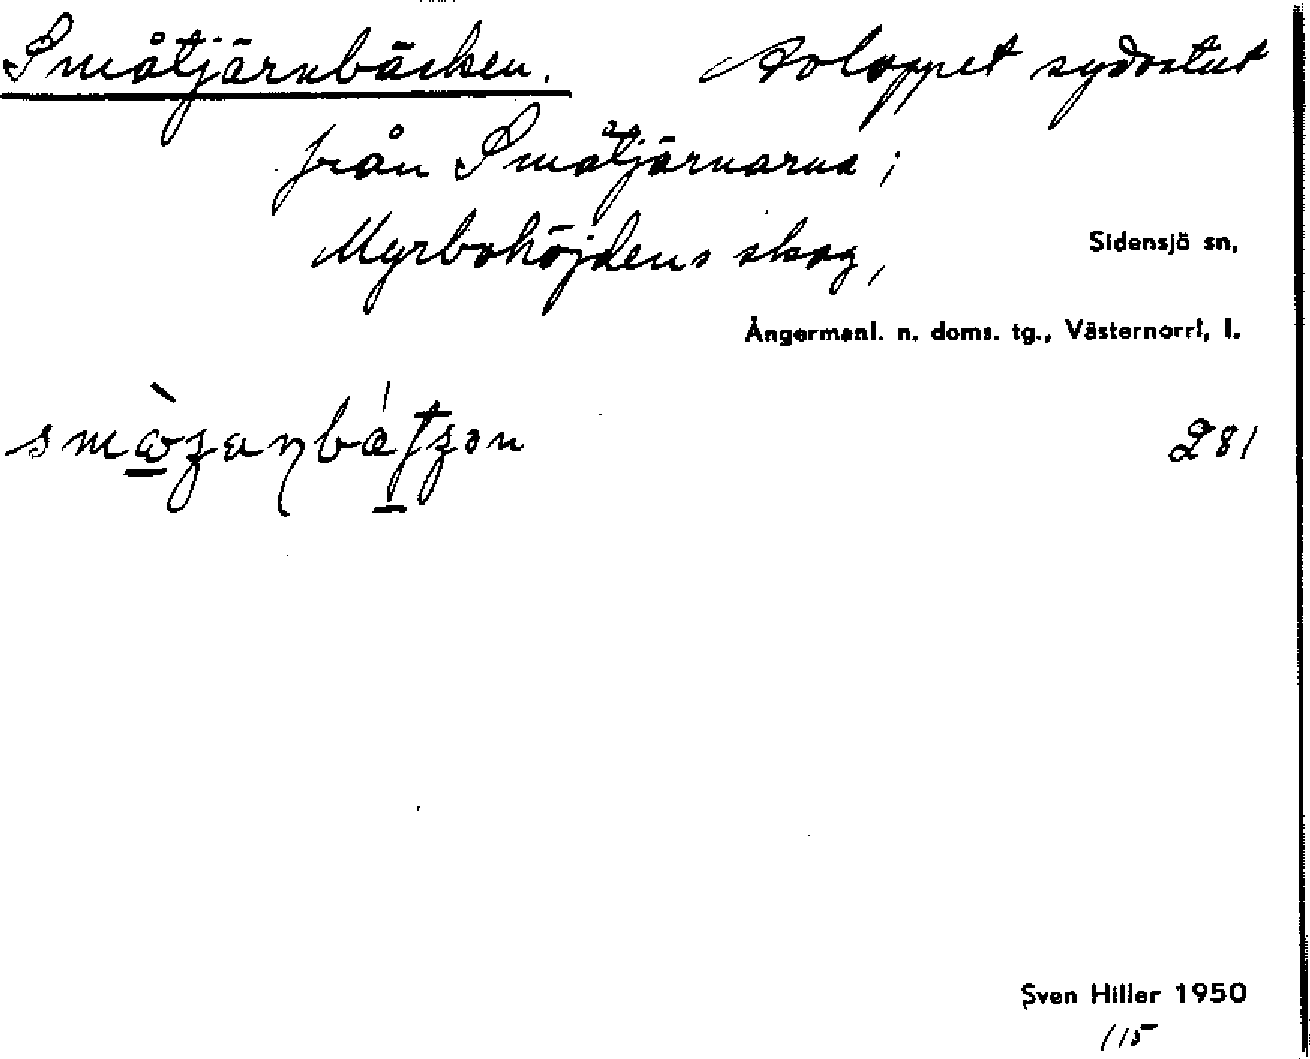 Småtjärnbäcken. Avloppet sydostut
från Småtjärnarna;
Myrbohöjdens skog,
Sidensjö sn,
Ångermanl. n. doms. tg., Västernorrl, l.
281
Sven Hiller 1950
115